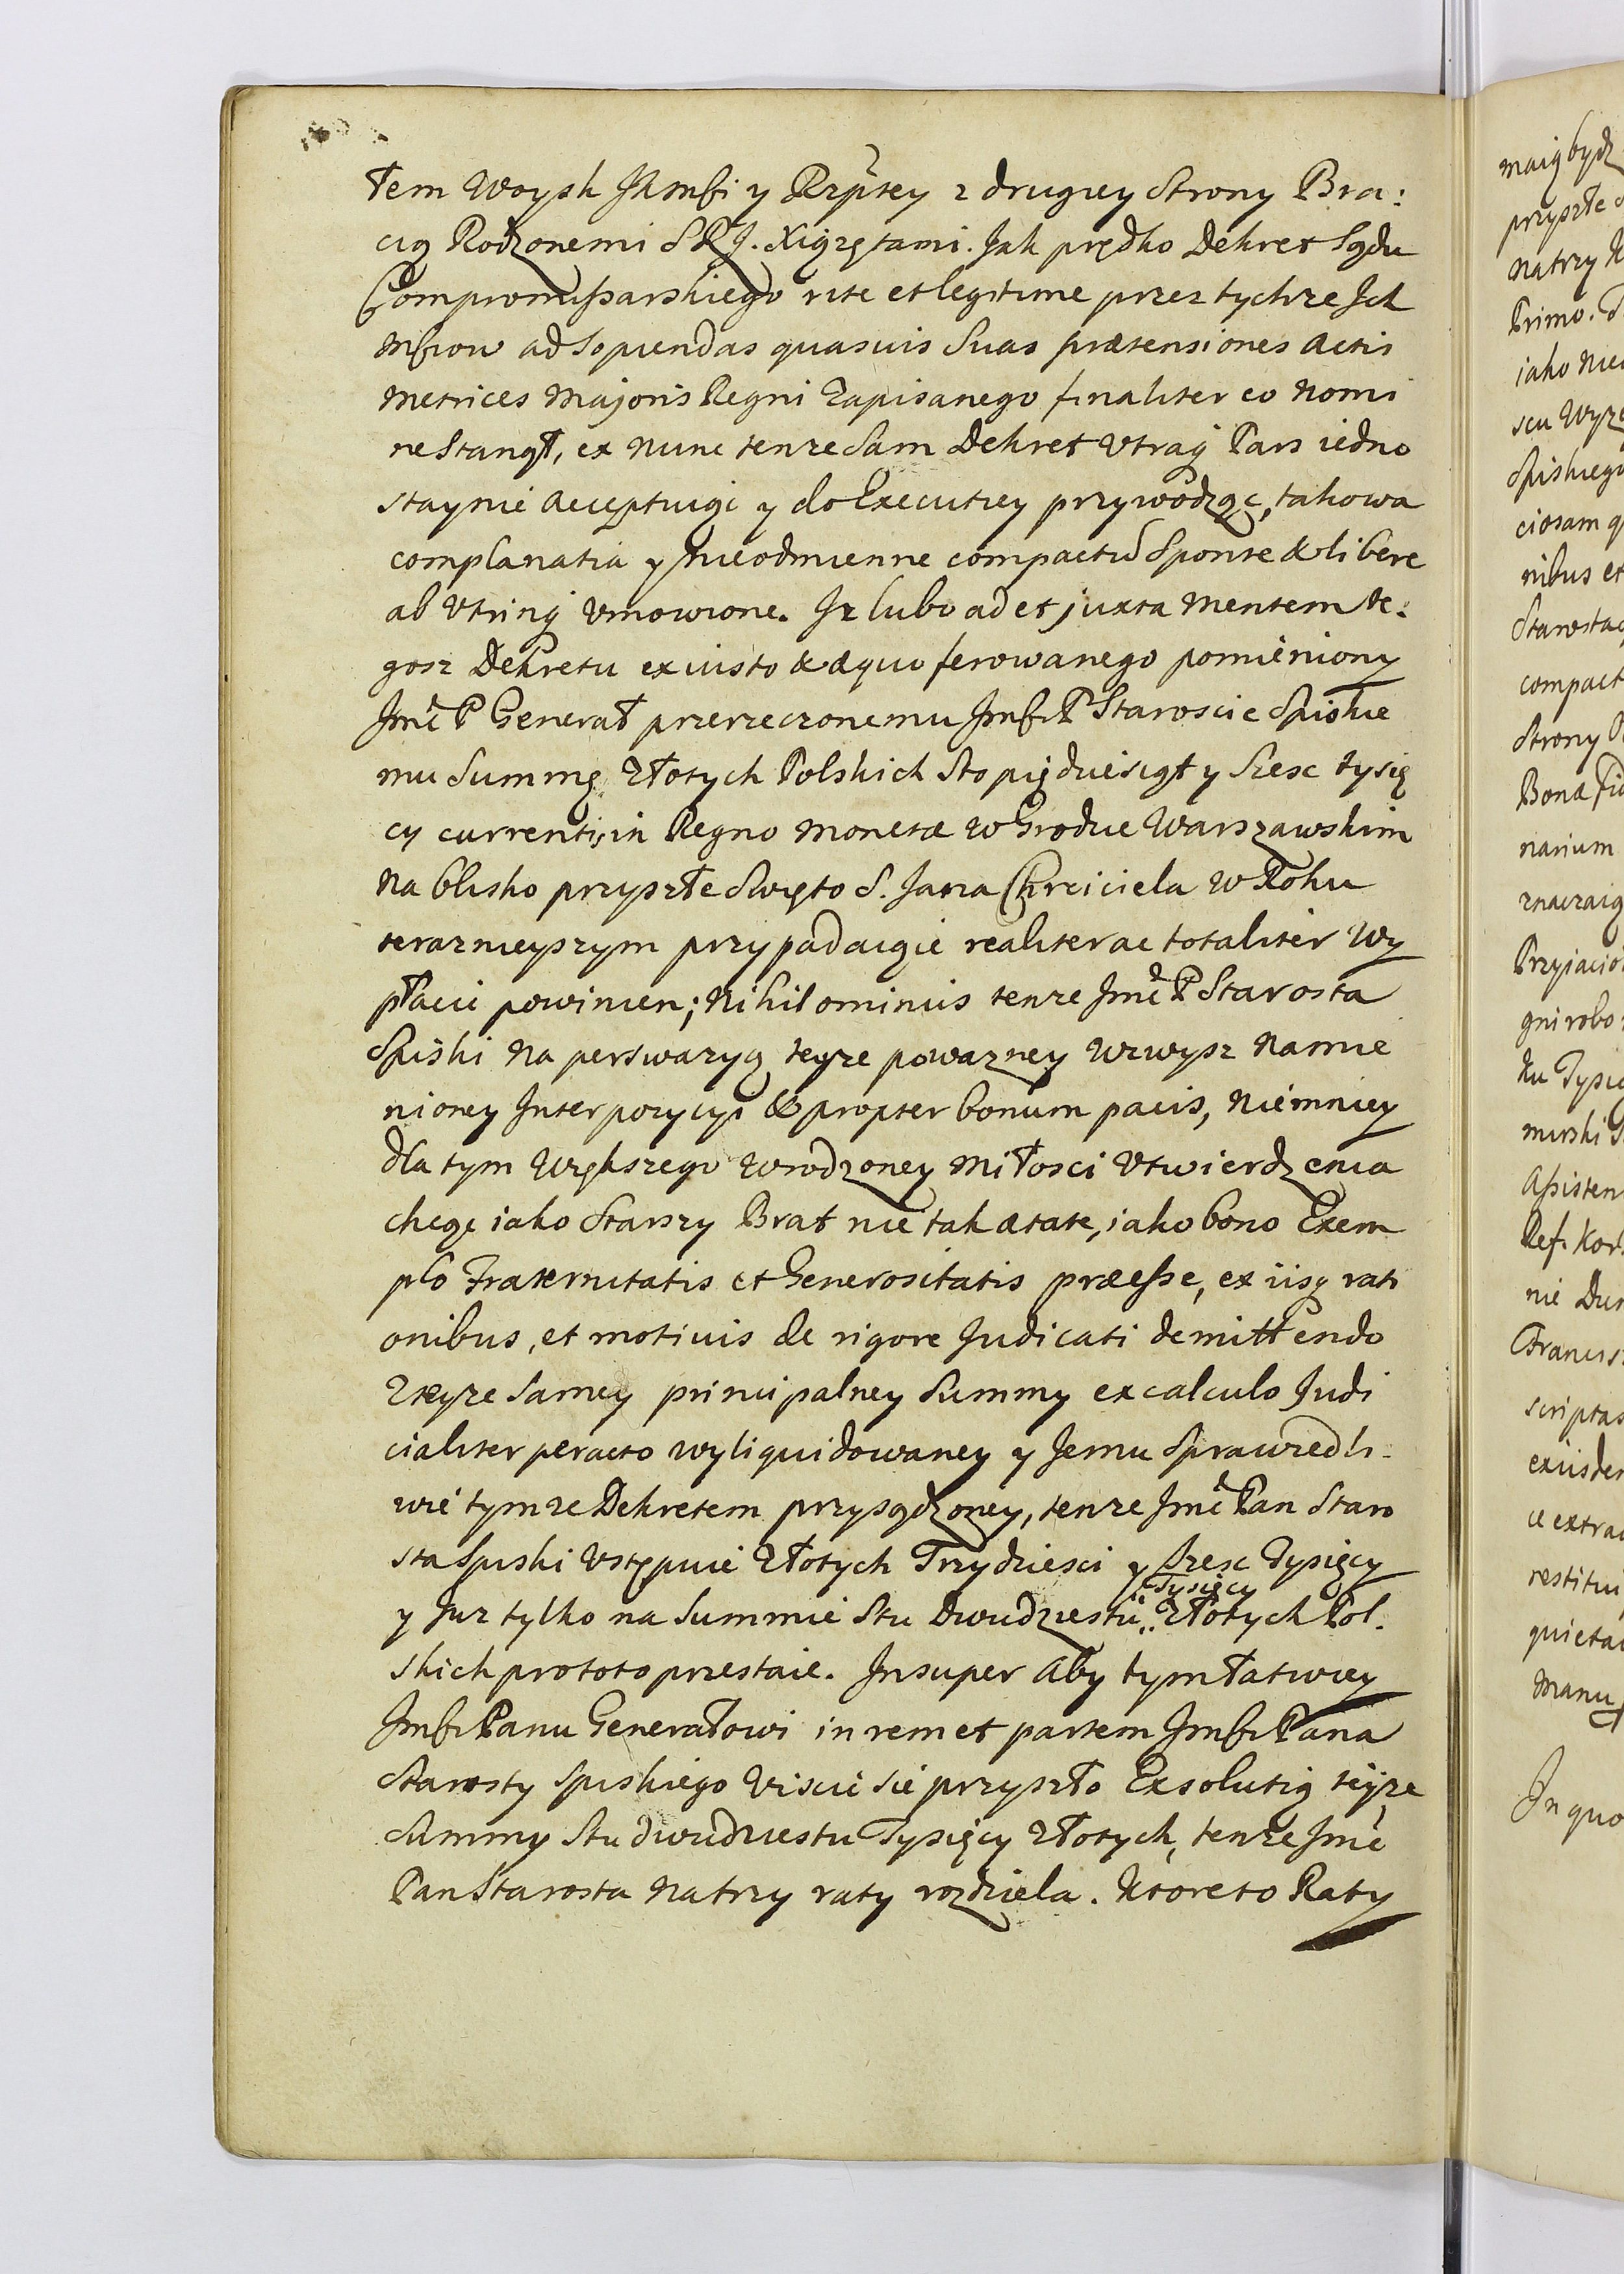 łem Woysk JKmści y Rzptey z drugiey Strony Bra:
cią Rodzonemi S R J. Xiążętami. Jak prędko Dekret Sądu
Compromissarskiego rite et legitime przez tychże Ich
Mściow ad Sopiendas quasuis Suas prætensiones Actis
Metrices Majoris Regni Zapisanego finaliter eo Nomi
ne Stanął, ex Nunc tenże Sam Dekret Vtraq Pars iedno
staynie Acceptuiąc y do Executiey przywodząc, takowa
complanatia y Nieodmienne compactũ Sponte & libere
ab Vtrinq Vmowione. Iż lubo ad et juxta Mentem te:
gosz Dekretu ex iusto & æquo ferowanego pomieniony
Jmć P Generał przerzeczonemu Jmści P Staroscie Spiskie
mu Summę Złotych Polskich Sto pięcdziesiąt y Szesc tysię
cy currentis in Regno Monetæ W Grodzie Warszawskim
Na blisko przyszłe Swięto S. Jana Chrciciela W Roku
teraznieyszym przypadaiące realiter ac totaliter Wy
płacic powinien; Nihilominus tenże Jmć P Starosta
Spiski Na perswazyą teyże powazney Wzwysz Namie
nioney Interpozycyi & propter bonum pacis, Niemniey
dla tym Większego Wrodzoney Miłosci Vtwierdzenia
chcąc iako Starszy Brat nie tak ætate, iako bono Exem
plo Fraternitatis et Generositatis præesse, ex iisq rati
onibus, et motiuis de rigore Judicati demittendo
Z teyże Samey principalney Summy ex calculo Judi
cialiter peracto wyliquidowaney y Jemu Sprawiedli:
wie tymże Dekretem przysądzoney, tenże Jmć Pan Staro
sta Spiski Vstępuie Złotych Trzydziesci y Szesc Tysięcy
Tysięcy
y Już tylko na Summie Stu Dwudziestu Złotych Pol:
skich prototo przestaie. Insuper Aby tym łatwiey
Jmści Panu Generałowi in rem et partem Jmści Pana
Starosty Spiskiego Viscic sie przyszło Exsolutią teyże
Summy Stu dwudziestu Tysięcy Złotych, tenże Jmć
Pan Starosta Na trzy raty rozdziela. Ktore to Raty